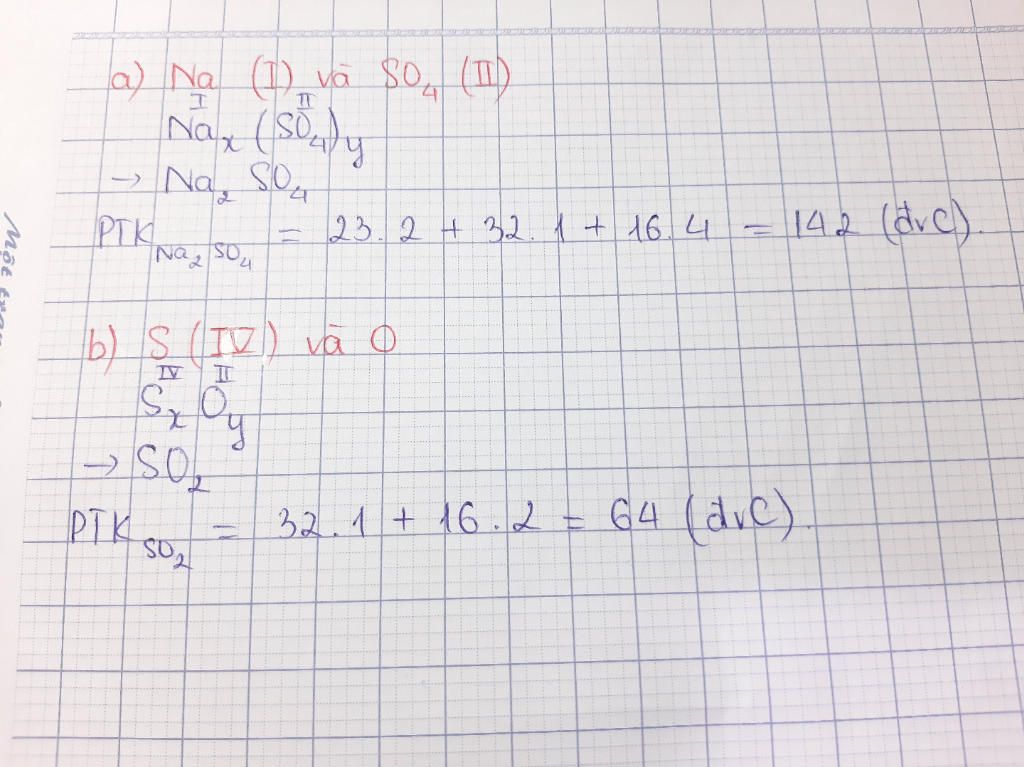 a) Na (I) và SO₄ (II)
I II
Naₓ (SO₄)y
→ Na₂ SO₄
PTK Na₂SO₄ = 23.2 + 32.1 + 16.4 = 142 (đvC).
b) S (IV) và O
IV II
Sₓ Oy
→ SO₂
PTK SO₂ = 32.1 + 16.2 = 64 (đvC).